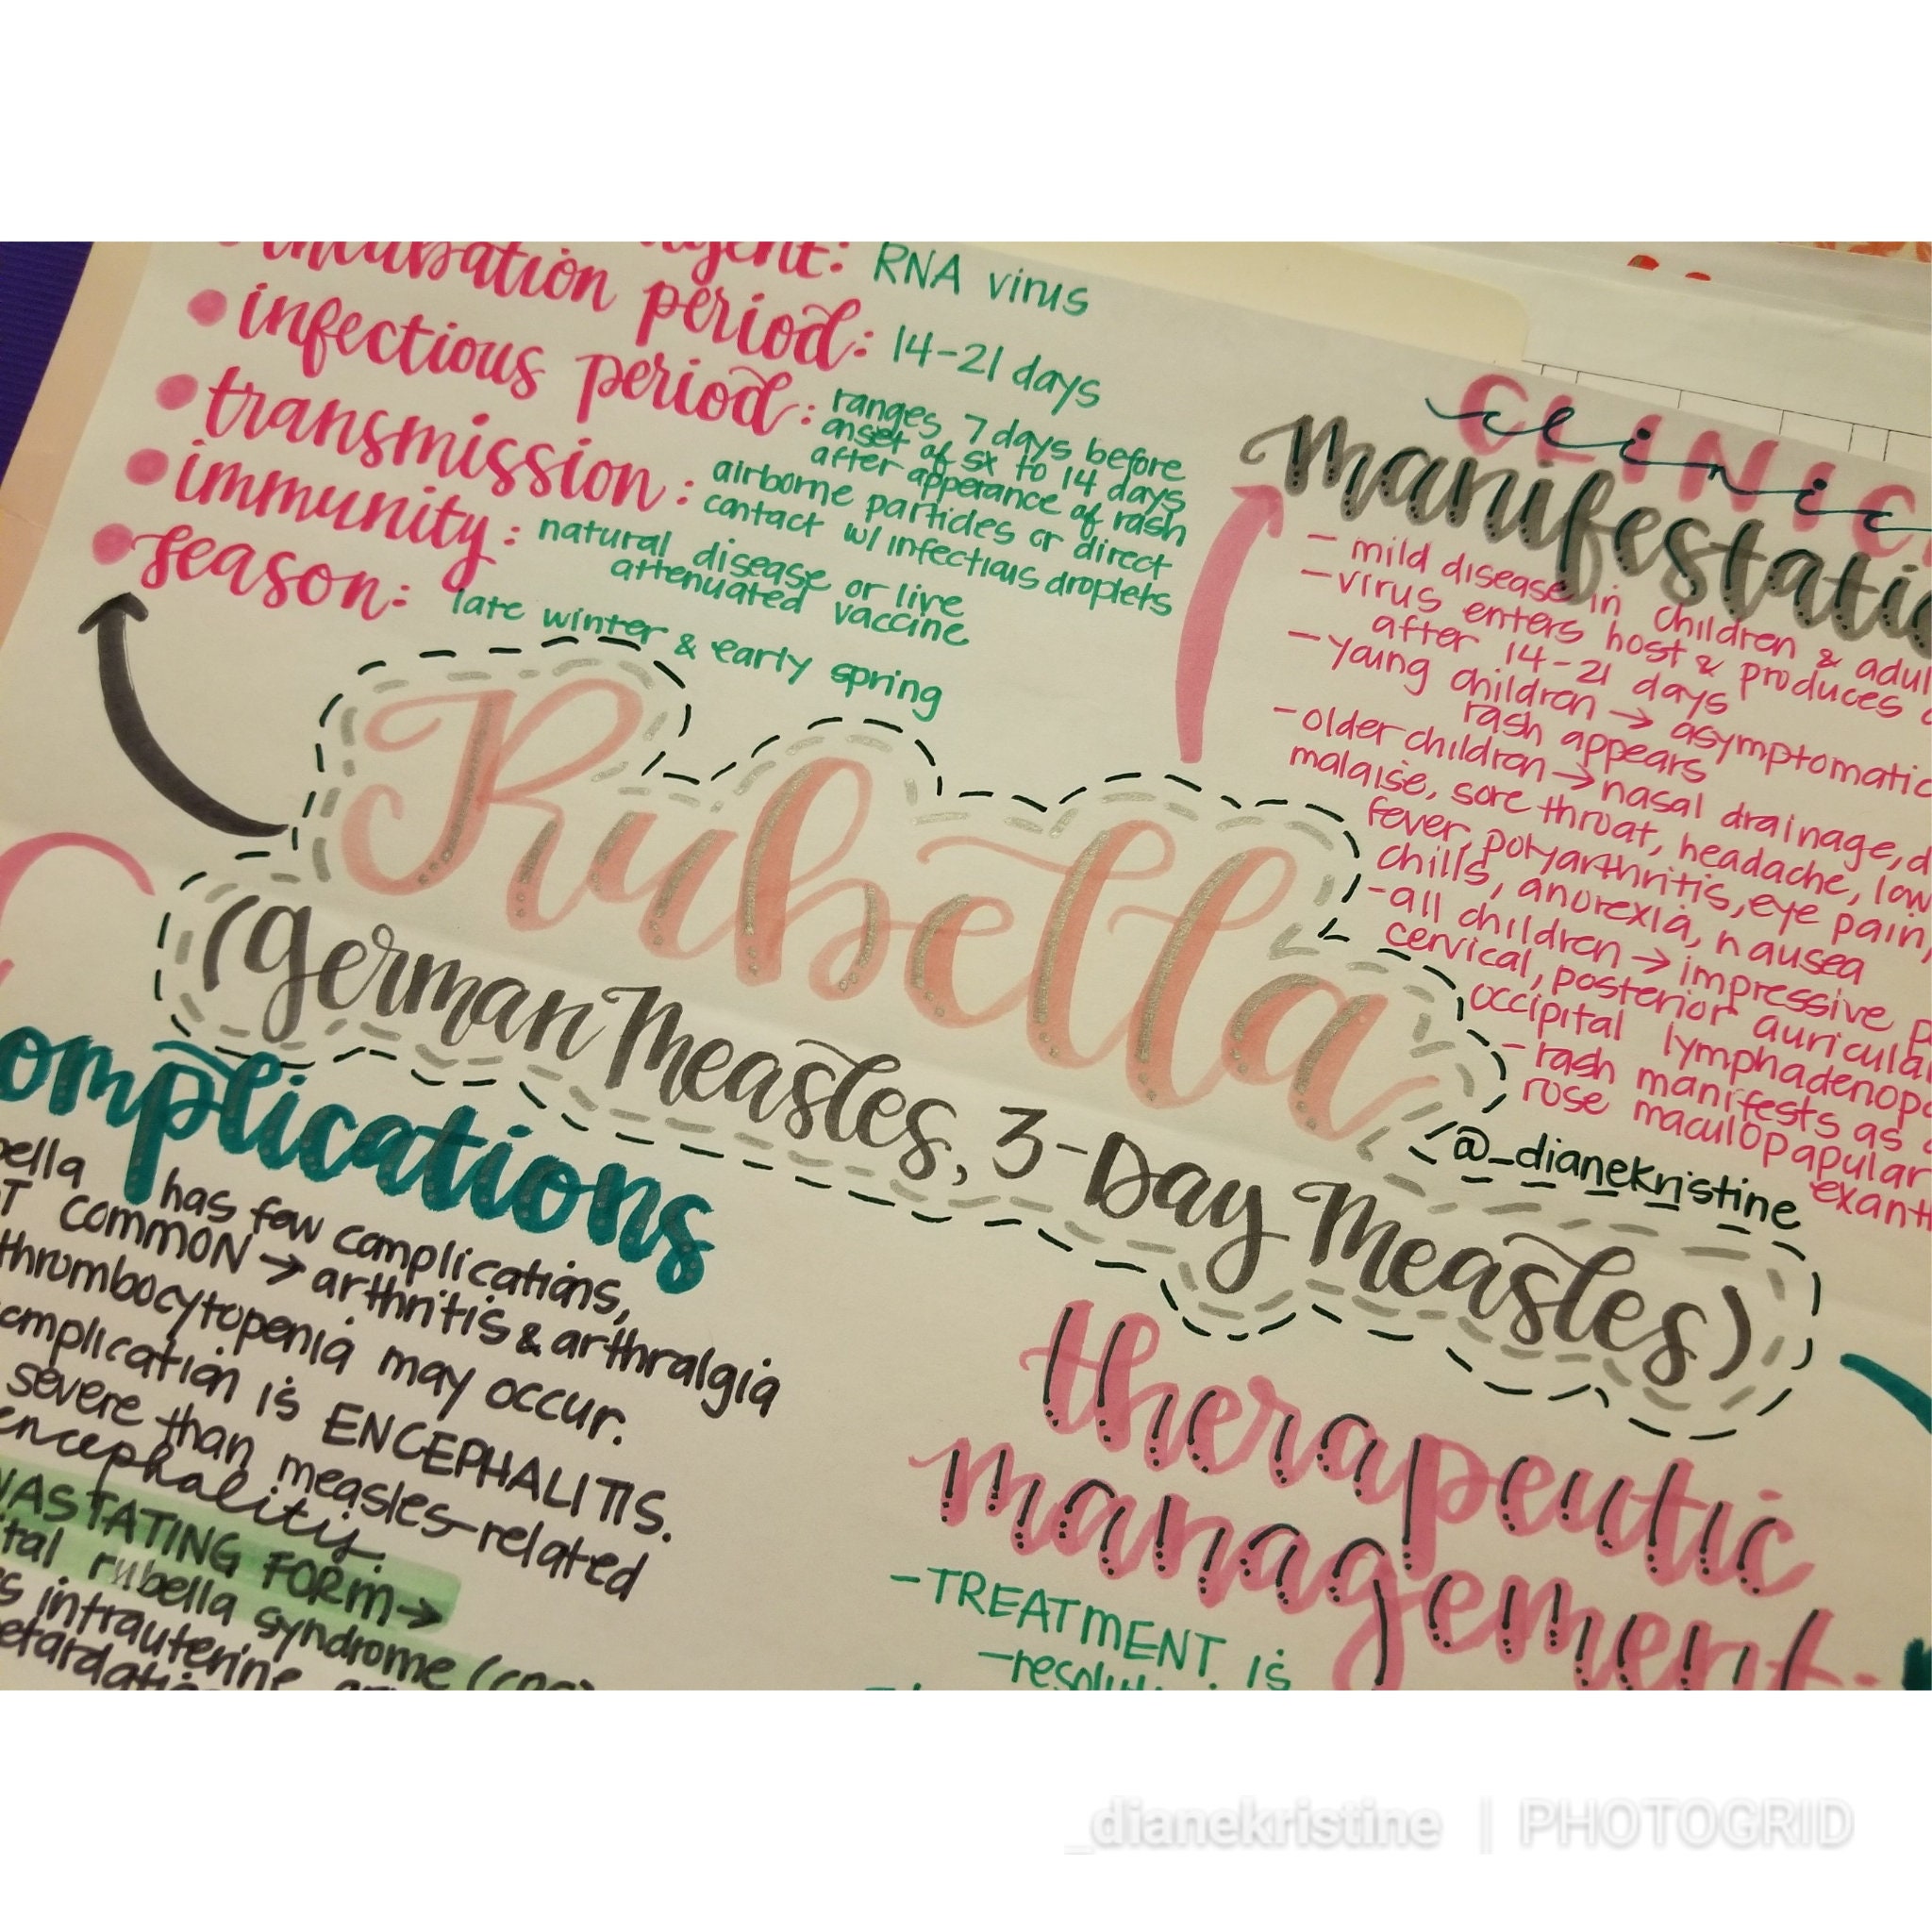 agent: RNA virus
incubation period: 14-21 days
infectious period: ranges 7 days before
onset of sx to 14 days
after apperance of rash
transmission: airborne particles or direct
contact w/ infectious droplets
immunity: natural disease or live
attenuated vaccine
season: late winter & early spring
CLINIC
clinic
manifestatio
- mild disease in children & adul
- virus enters host & produces
after 14-21 days
- young children → asymptomatic
rash appears
- older children → nasal drainage, d
malaise, sore throat, headache, low
fever, polyarthritis, eye pain,
chills, anorexia, nausea
- all children → impressive p
cervical, posterior auricular
occipital lymphadenopa
- rash manifests as a
rose maculopapular
exanth
Rubella
(German Measles, 3-Day Measles)
@_dianekristine
omplications
bella has few complications,
T COMMON → arthritis & arthralgia
thrombocytopenia may occur.
complication is ENCEPHALITIS.
severe than measles-related
encephalitis.
VASTATING FORM →
ital rubella syndrome (CRS)
s intrauterine
etardatio
therapeutic
management
- TREATMENT is
- resolut
_dianekristine | PHOTOGRID